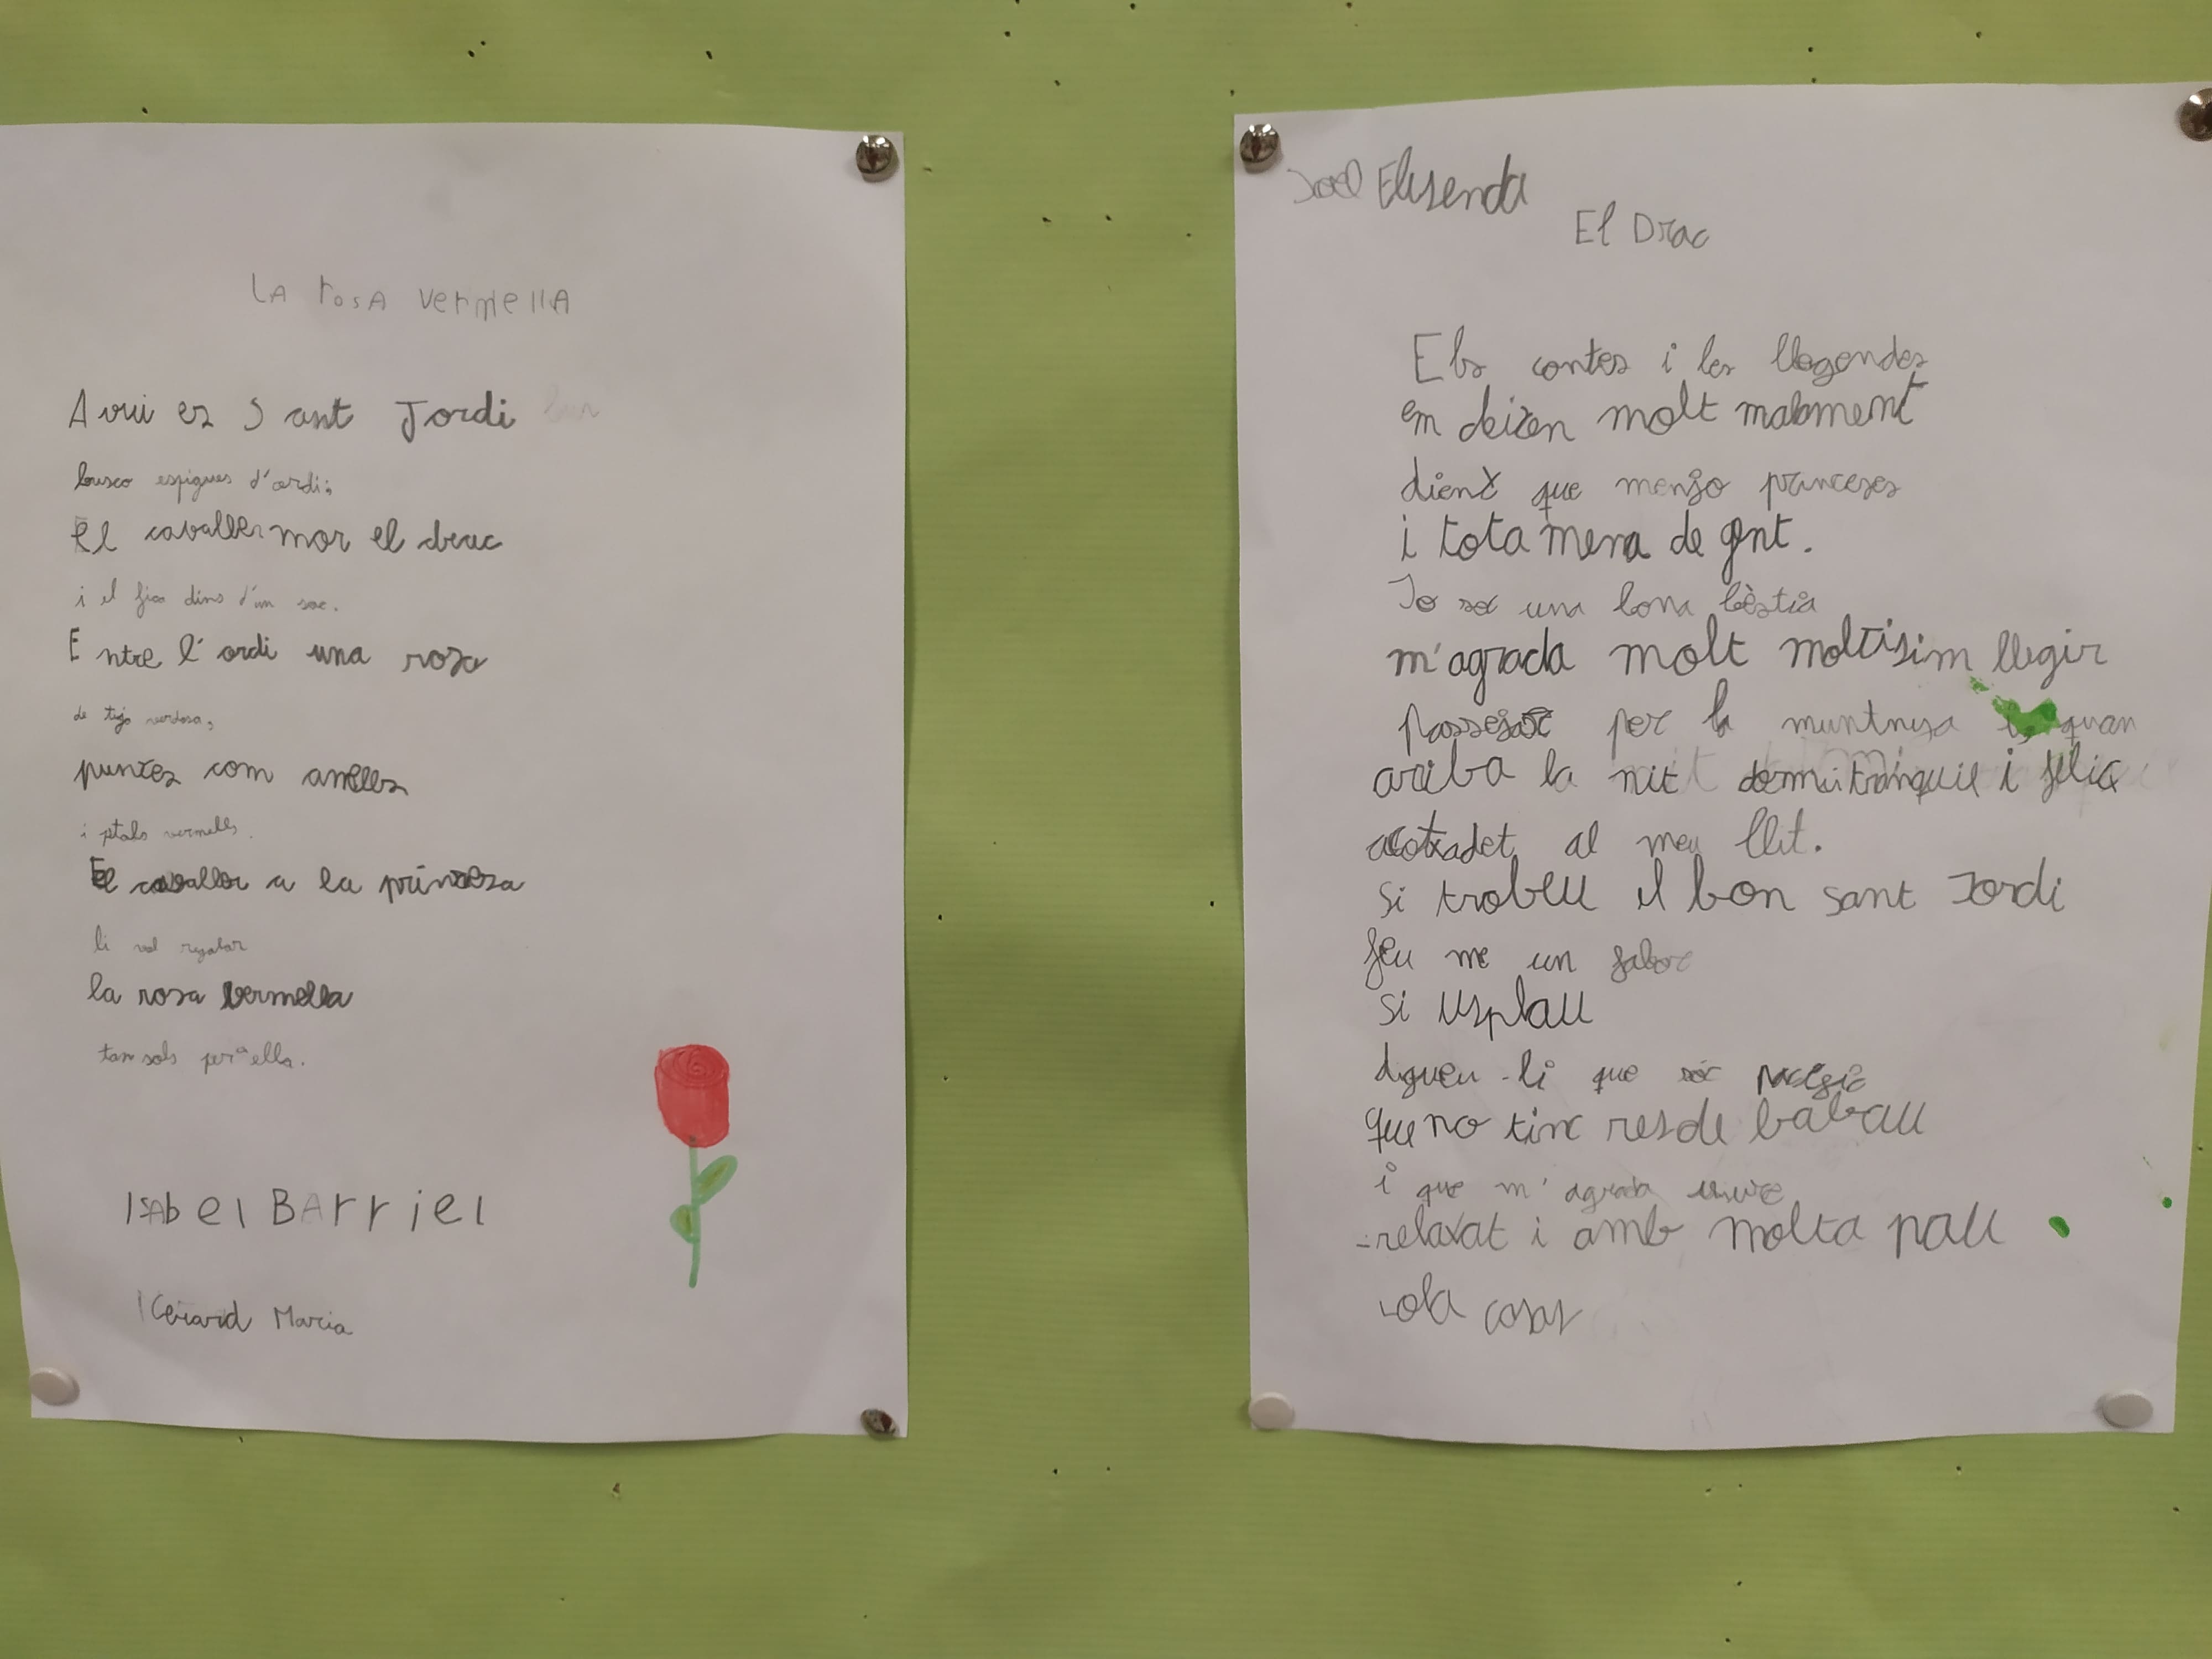 LA rosA VermellA
Avui es Sant Jordi
busco espigues d'ordi;
El cavaller mor el drac
i el fico dins d'un sac.
Entre l'ordi una rosa
de tija verdosa,
punxes com anelles
i ptals vermells.
El cavaller a la princesa
li vol regalar
la rosa vermella
tan sols per a ella.
ISAbel BArriel
Gerard Maria
Joel Elisenda
El Drac
Els contes i les llegendes
em deixen molt malament
dient que menjo princeses
i tota mena de gent.
Jo soc una bona bèstia
m'agrada molt moltisim llegir
passejar per la muntnya i quan
ariba la nit dormir tranquil i feliç
acotxadet al meu llit.
si trobeu el bon sant Jordi
feu me un fabor
si usplau
digueu-li que sóc pacific
que no tinc res de babau
i que m'agrada viure
relaxat i amb molta pau